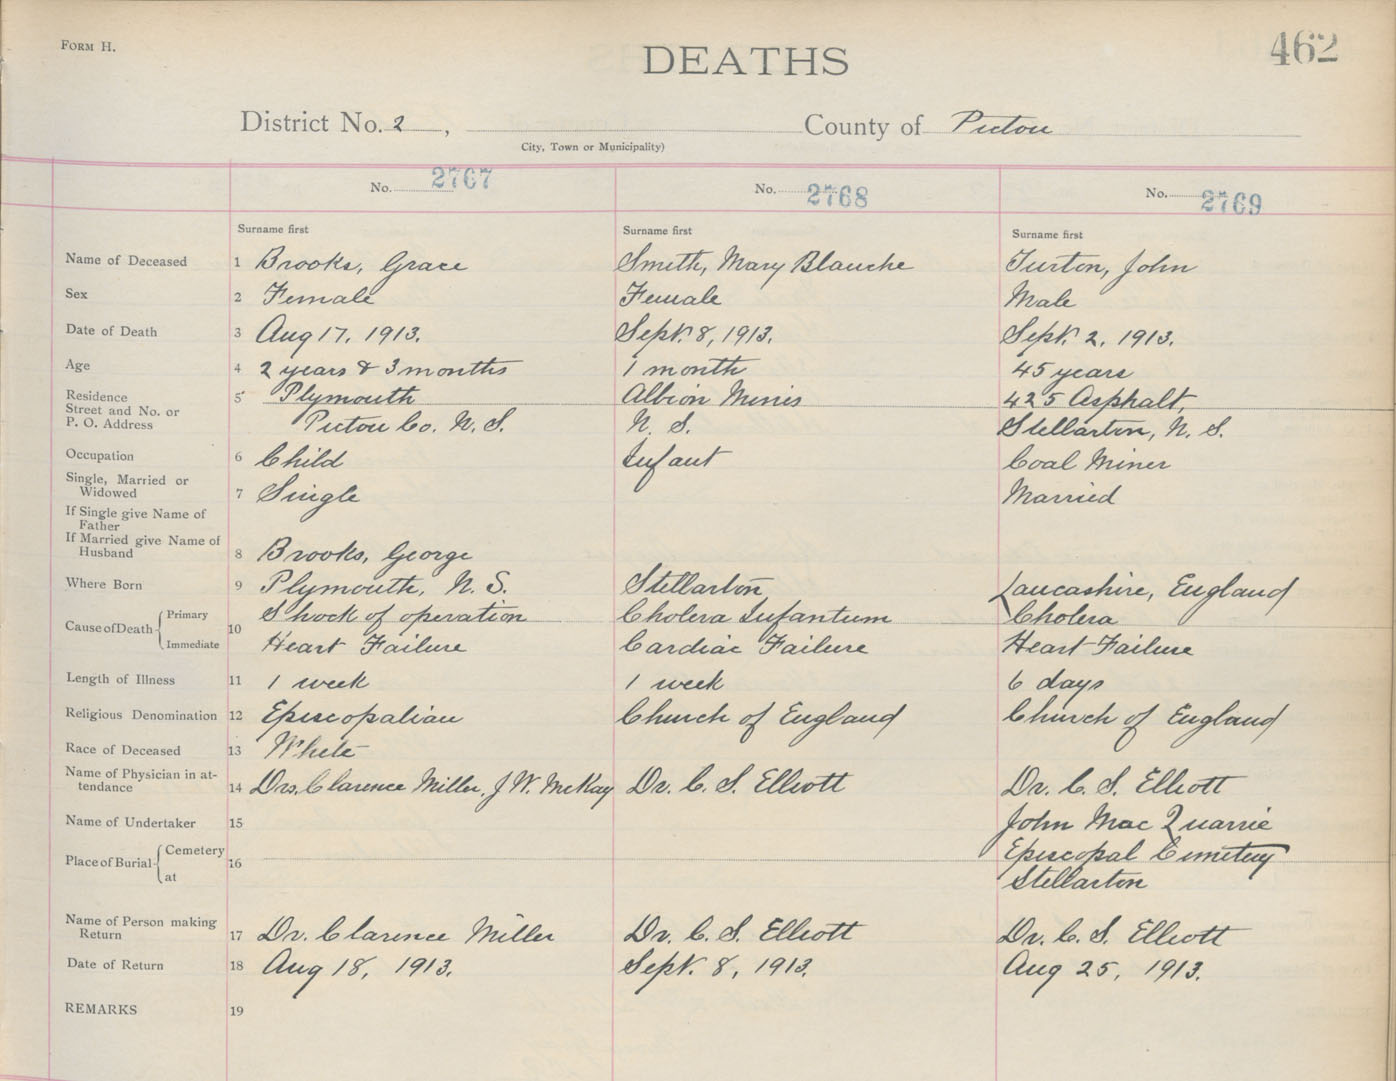 FORM H.
DEATHS
462
District No. 2 , County of Pictou
City, Town or Municipality)
No. 2767 No. 2768 No. 2769
Surname first Surname first Surname first
Name of Deceased 1 Brooks, Grace Smith, Mary Blanche Turton, John
Sex 2 Female Female Male
Date of Death 3 Aug 17, 1913. Sept. 8, 1913. Sept. 2, 1913.
Age 4 2 years & 3 months 1 month 45 years
Residence 5 Plymouth Albion Mines 425 Asphalt,
Street and No. or
P. O. Address Pictou Co. N. S. N. S. Stellarton, N. S.
Occupation 6 Child Infant Coal Miner
Single, Married or
Widowed 7 Single Married
If Single give Name of
Father
If Married give Name of
Husband 8 Brooks, George
Where Born 9 Plymouth, N. S. Stellarton Lancashire, England
Cause of Death 10 Primary Shock of operation Cholera Infantum Cholera
Immediate Heart Failure Cardiac Failure Heart Failure
Length of Illness 11 1 week 1 week 6 days
Religious Denomination 12 Episcopalian Church of England Church of England
Race of Deceased 13 White
Name of Physician in at-
tendance 14 Drs. Clarence Miller, J W. McKay Dr. C. S. Elliott Dr. C. S. Elliott
Name of Undertaker 15 John Mac Quarrie
Place of Burial 16 Cemetery Episcopal Cemetery
at Stellarton
Name of Person making
Return 17 Dr. Clarence Miller Dr. C. S. Elliott Dr. C. S. Elliott
Date of Return 18 Aug 18, 1913. Sept. 8, 1913. Aug 25, 1913.
REMARKS 19